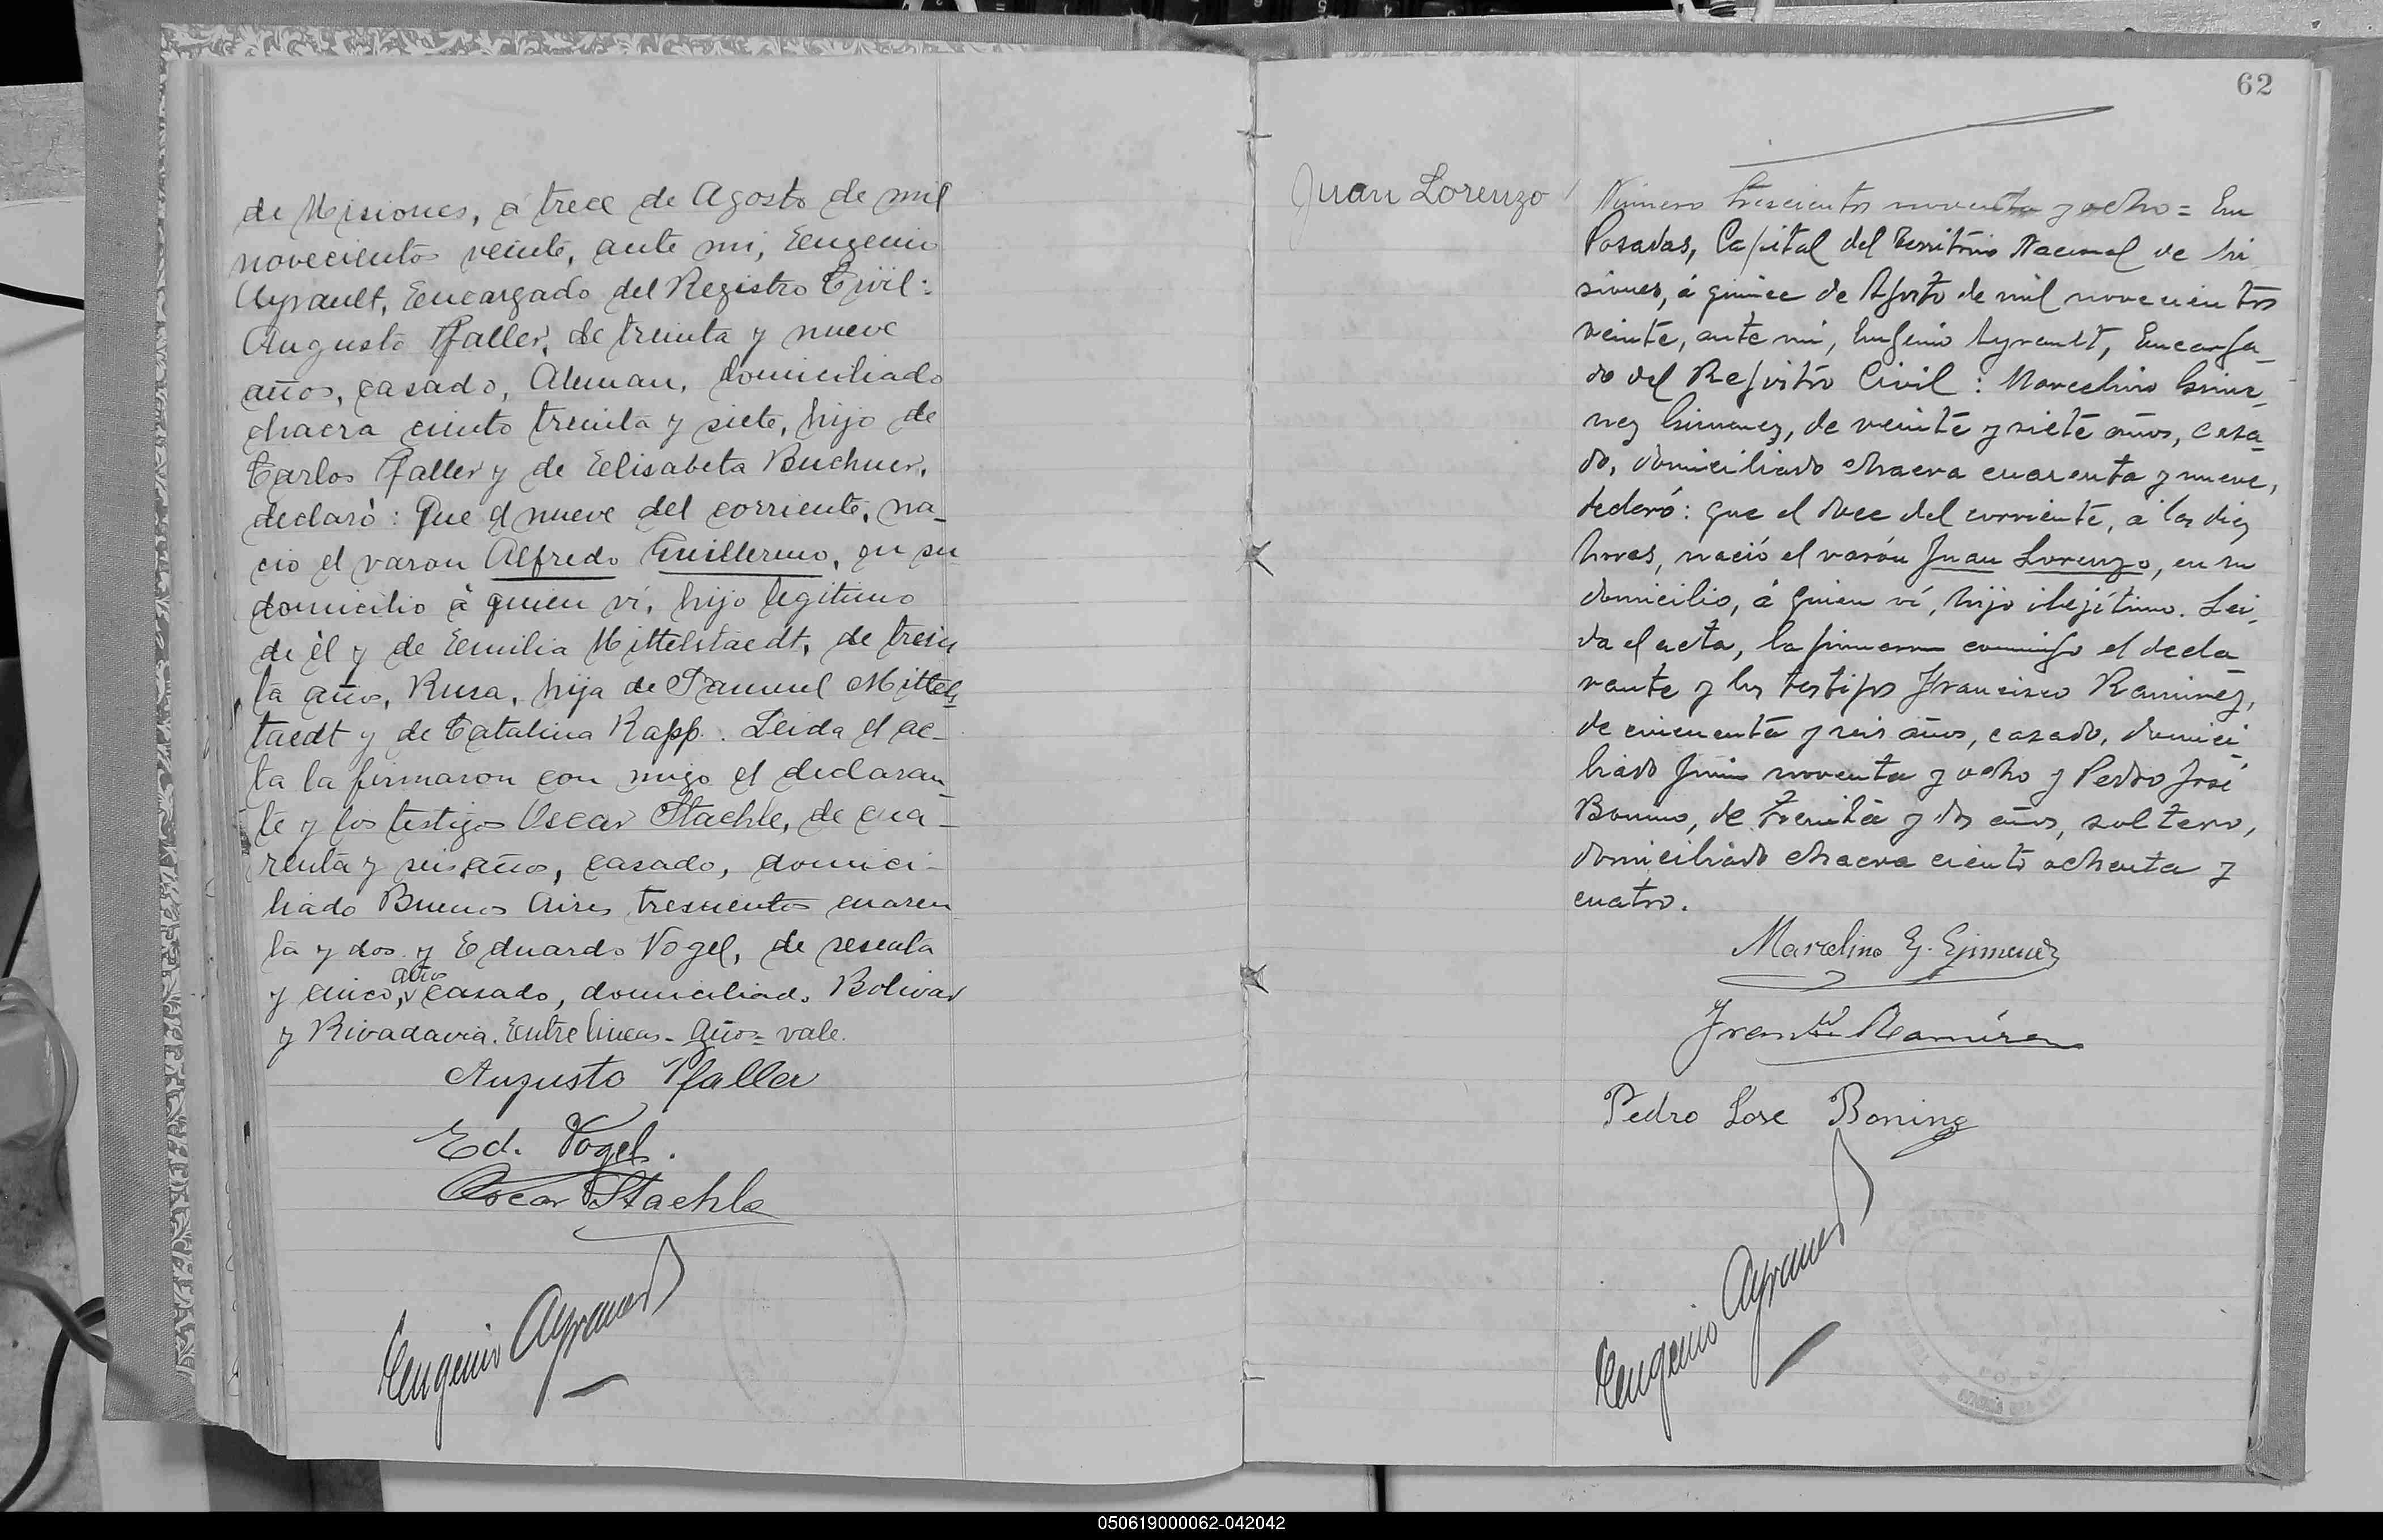 de Misiones, á trece de Agosto de mil
novecientos veinte, ante mi, Eugenio
Ayrault, Encargado del Registro Civil:
Augusto Pfaller, de treinta y nueve
años, casado, Aleman, domiciliado
chacra ciento treinta y siete, hijo de
Carlos Pfaller y de Elisabeta Buchner,
declaró: Que el nueve del corriente, na-
cio el varon Alfredo Guillermo, en su
domicilio á quien ví, hijo legitimo
de él y de Emilia Mittelstaedt, de trein
ta años, Rusa, hija de Samuel Mittels
taedt y de Catalina Rapp. Leida el ac-
ta la firmaron con migo el declaran-
te y los testigos Oscar Staehle, de cua-
renta y seis años, casado, domici-
liado Buenos Aires trescientos cuaren
ta y dos y Eduardo Vogel, de sesenta
años
y cinco, casado, domiciliado Bolivar
y Rivadavia. Entre lineas - años = vale.
Augusto Pfaller
Ed. Vogel.
Oscar Staehle
Eugenio Ayrault
62
Juan Lorenzo
Número trescientos noventa y ocho = En
Posadas, Capital del Territorio Nacional de Mi
siones, á quince de Agosto de mil novecientos
veinte, ante mi, Eugenio Ayrault, Encarga-
do del Registro Civil: Marcelino Gime-
nez Gimenez, de veinte y siete años, casa-
do, domiciliado chacra cuarenta y nueve,
declaró: que el doce del corriente, á las diez
horas, nació el varón Juan Lorenzo, en su
domicilio, á quien ví, hijo ilejítimo. Lei-
da el acta, la firmaron conmigo el decla-
rante y los testigos Francisco Ramirez,
de cincuenta y seis años, casado, domici-
liado Junin noventa y ocho y Pedro José
Bonino, de treinta y dos años, soltero,
domiciliado chacra ciento ochenta y
cuatro.
Marcelino G. Gimenez
Franco Ramírez
Pedro Jose Bonino
Eugenio Ayrault
050619000062-042042